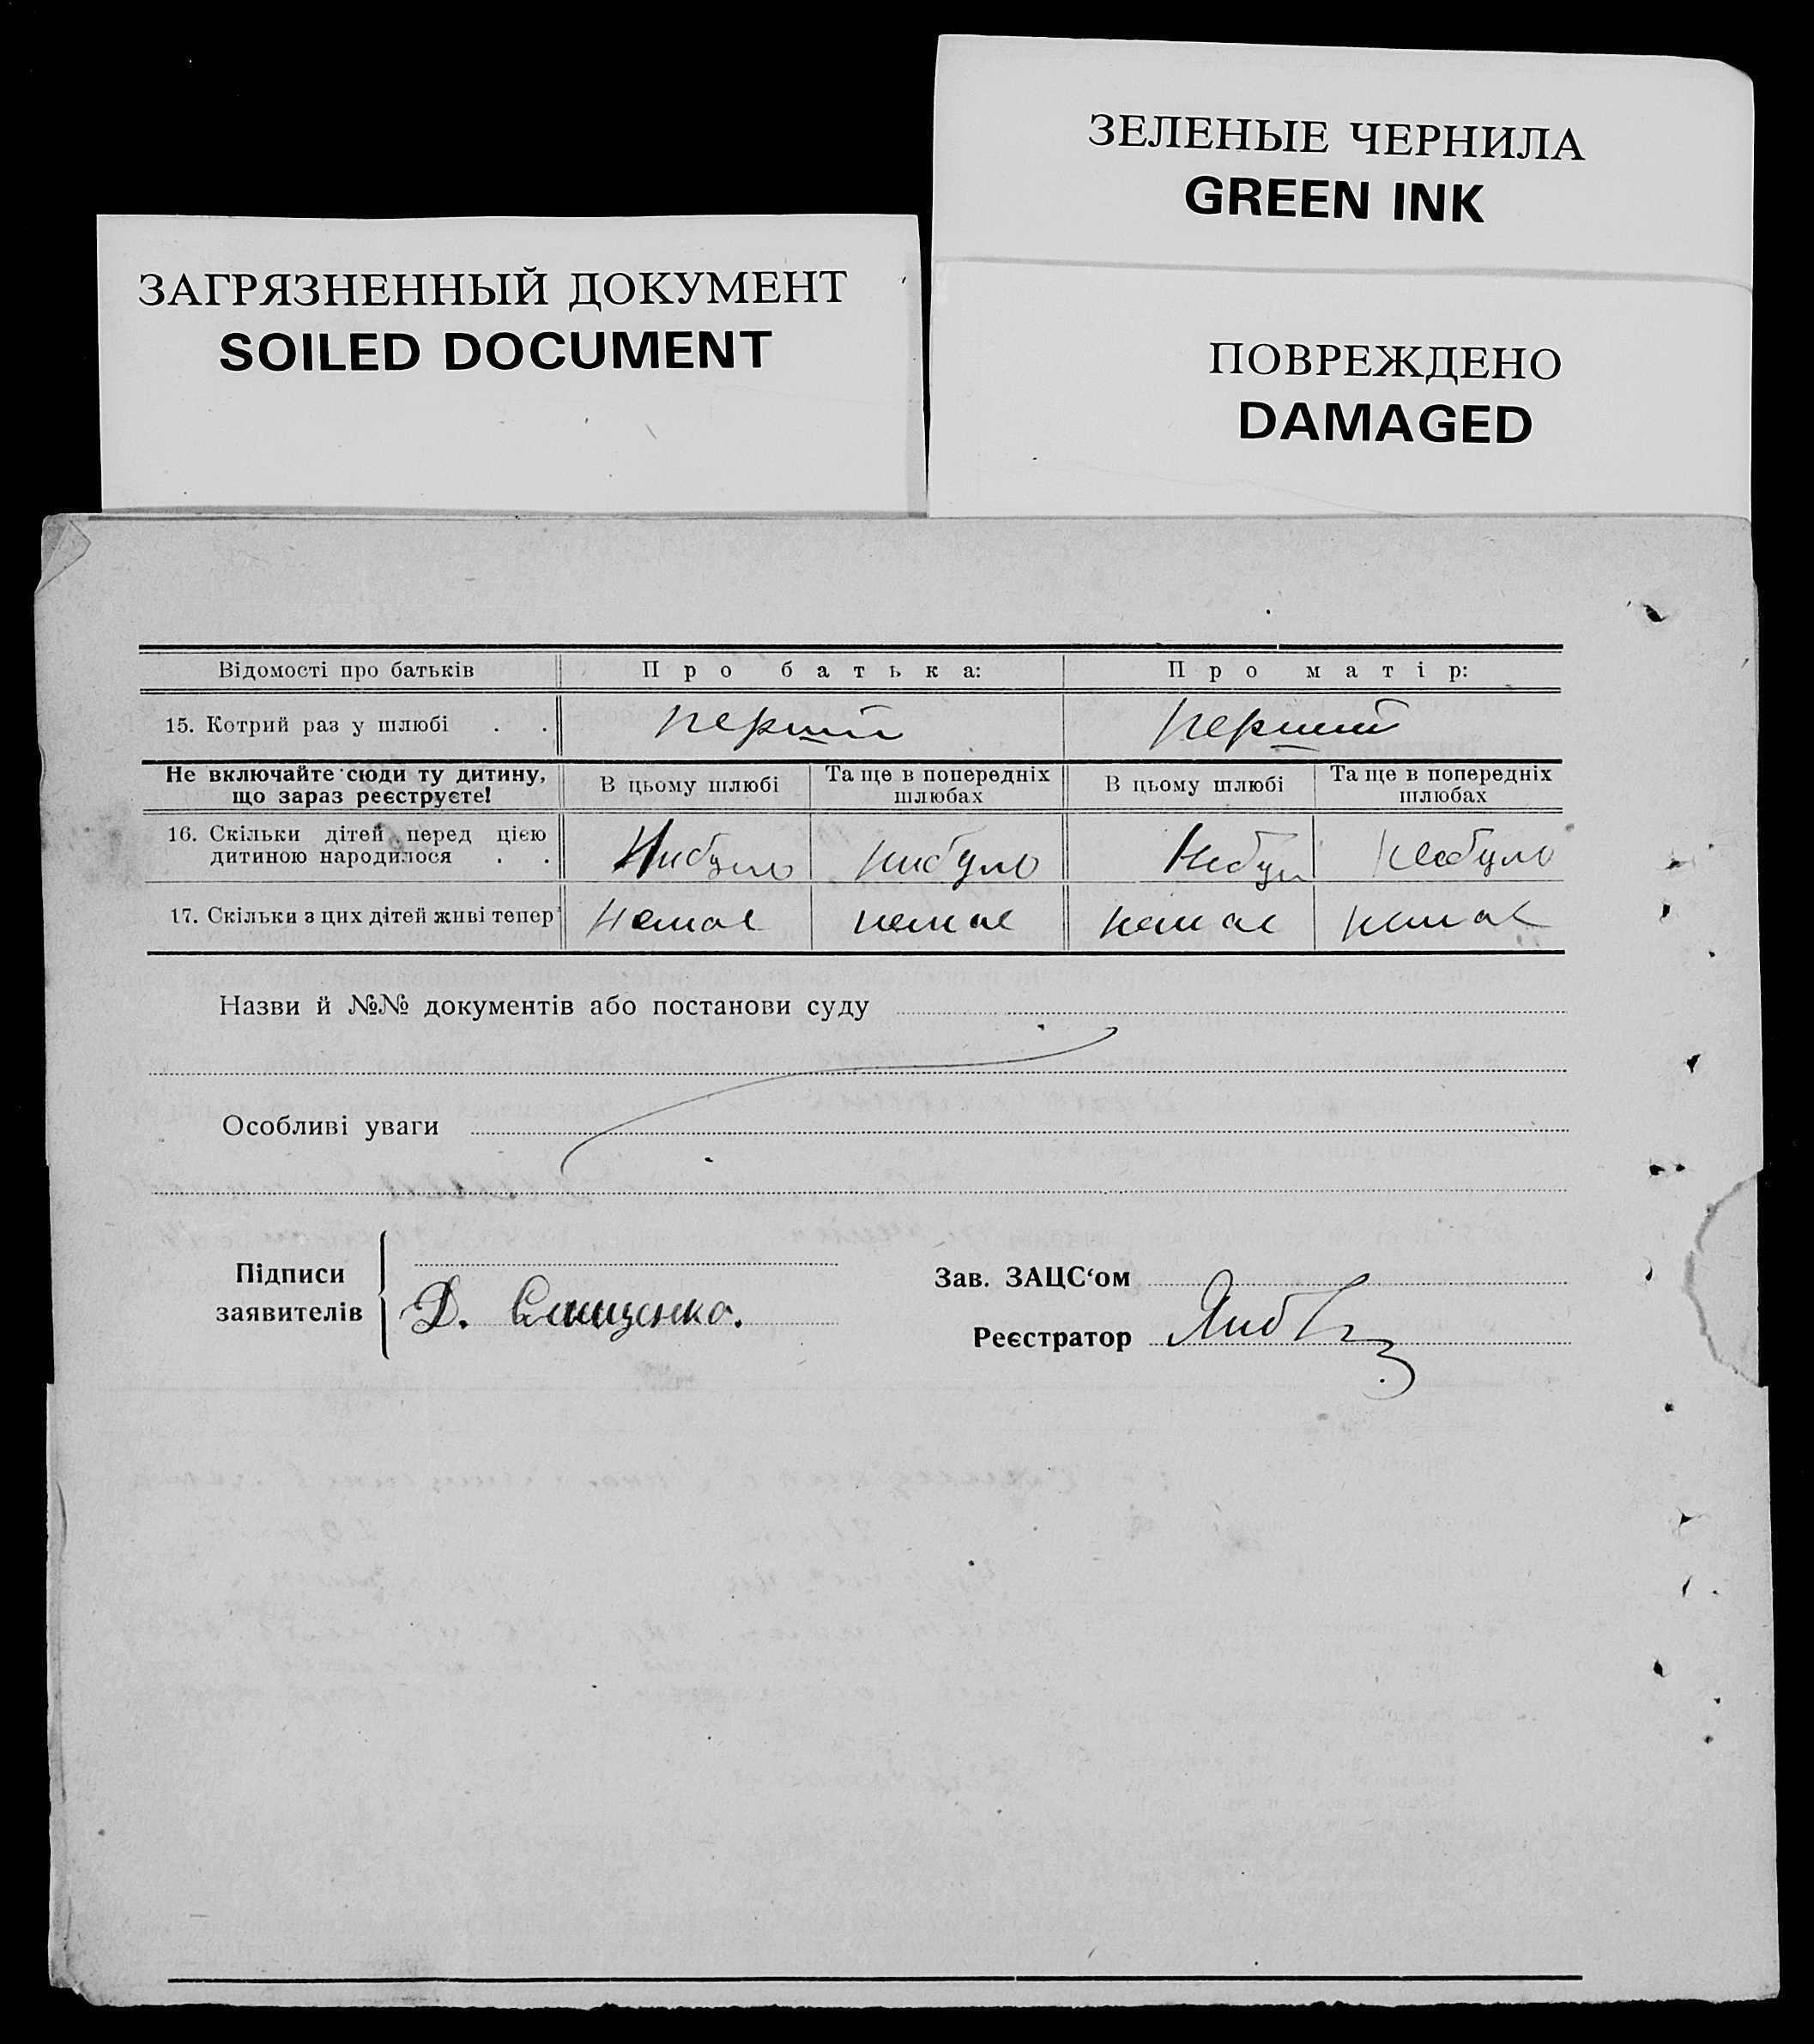 ЗЕЛЕНЫЕ ЧЕРНИЛА
GREEN INK
ЗАГРЯЗНЕННЫЙ ДОКУМЕНТ
SOILED DOCUMENT
ПОВРЕЖДЕНО
DAMAGED
Відомості про батьків Про батька: Про матір:
15. Котрий раз у шлюбі . . перший перший
Не включайте сюди ту дитину, що зараз реєструєте! В цьому шлюбі Та ще в попередніх шлюбах В цьому шлюбі Та ще в попередніх шлюбах
16. Скільки дітей перед цією
дитиною народилося . . Нибуло нибуло Небул небуло
17. Скільки з цих дітей живі тепер немає немає немає немає
Назви й №№ документів або постанови суду
Особливі уваги
Підписи
заявителів
Д.
Зав. ЗАЦС‘ом
Реєстратор